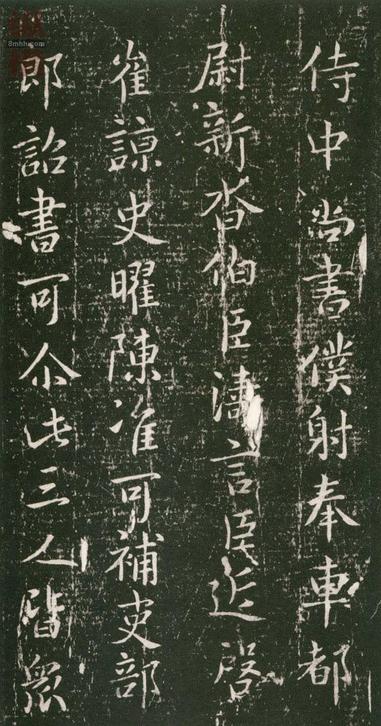 侍中尚書僕射奉車都
尉新沓伯臣濤言臣近啓
崔諒史曜陳准可補吏部
郎詔書可尒此三人皆衆
8mhh.com